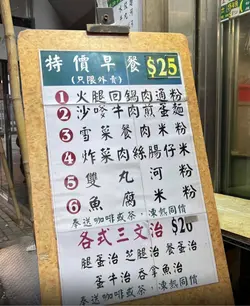 特價早餐 $25
(只限外賣)
1 火腿回鍋肉通粉
2 沙嗲牛肉煎蛋麵
3 雪菜餐肉米粉
4 炸菜肉絲腸仔米
5 雙丸河粉
6 魚腐米粉
奉送咖啡或茶:凍熱同價
各式三文治 $20
腿蛋治 芝腿治 餐蛋治
蛋牛治 吞拿魚治
奉送咖啡或茶:凍熱同價